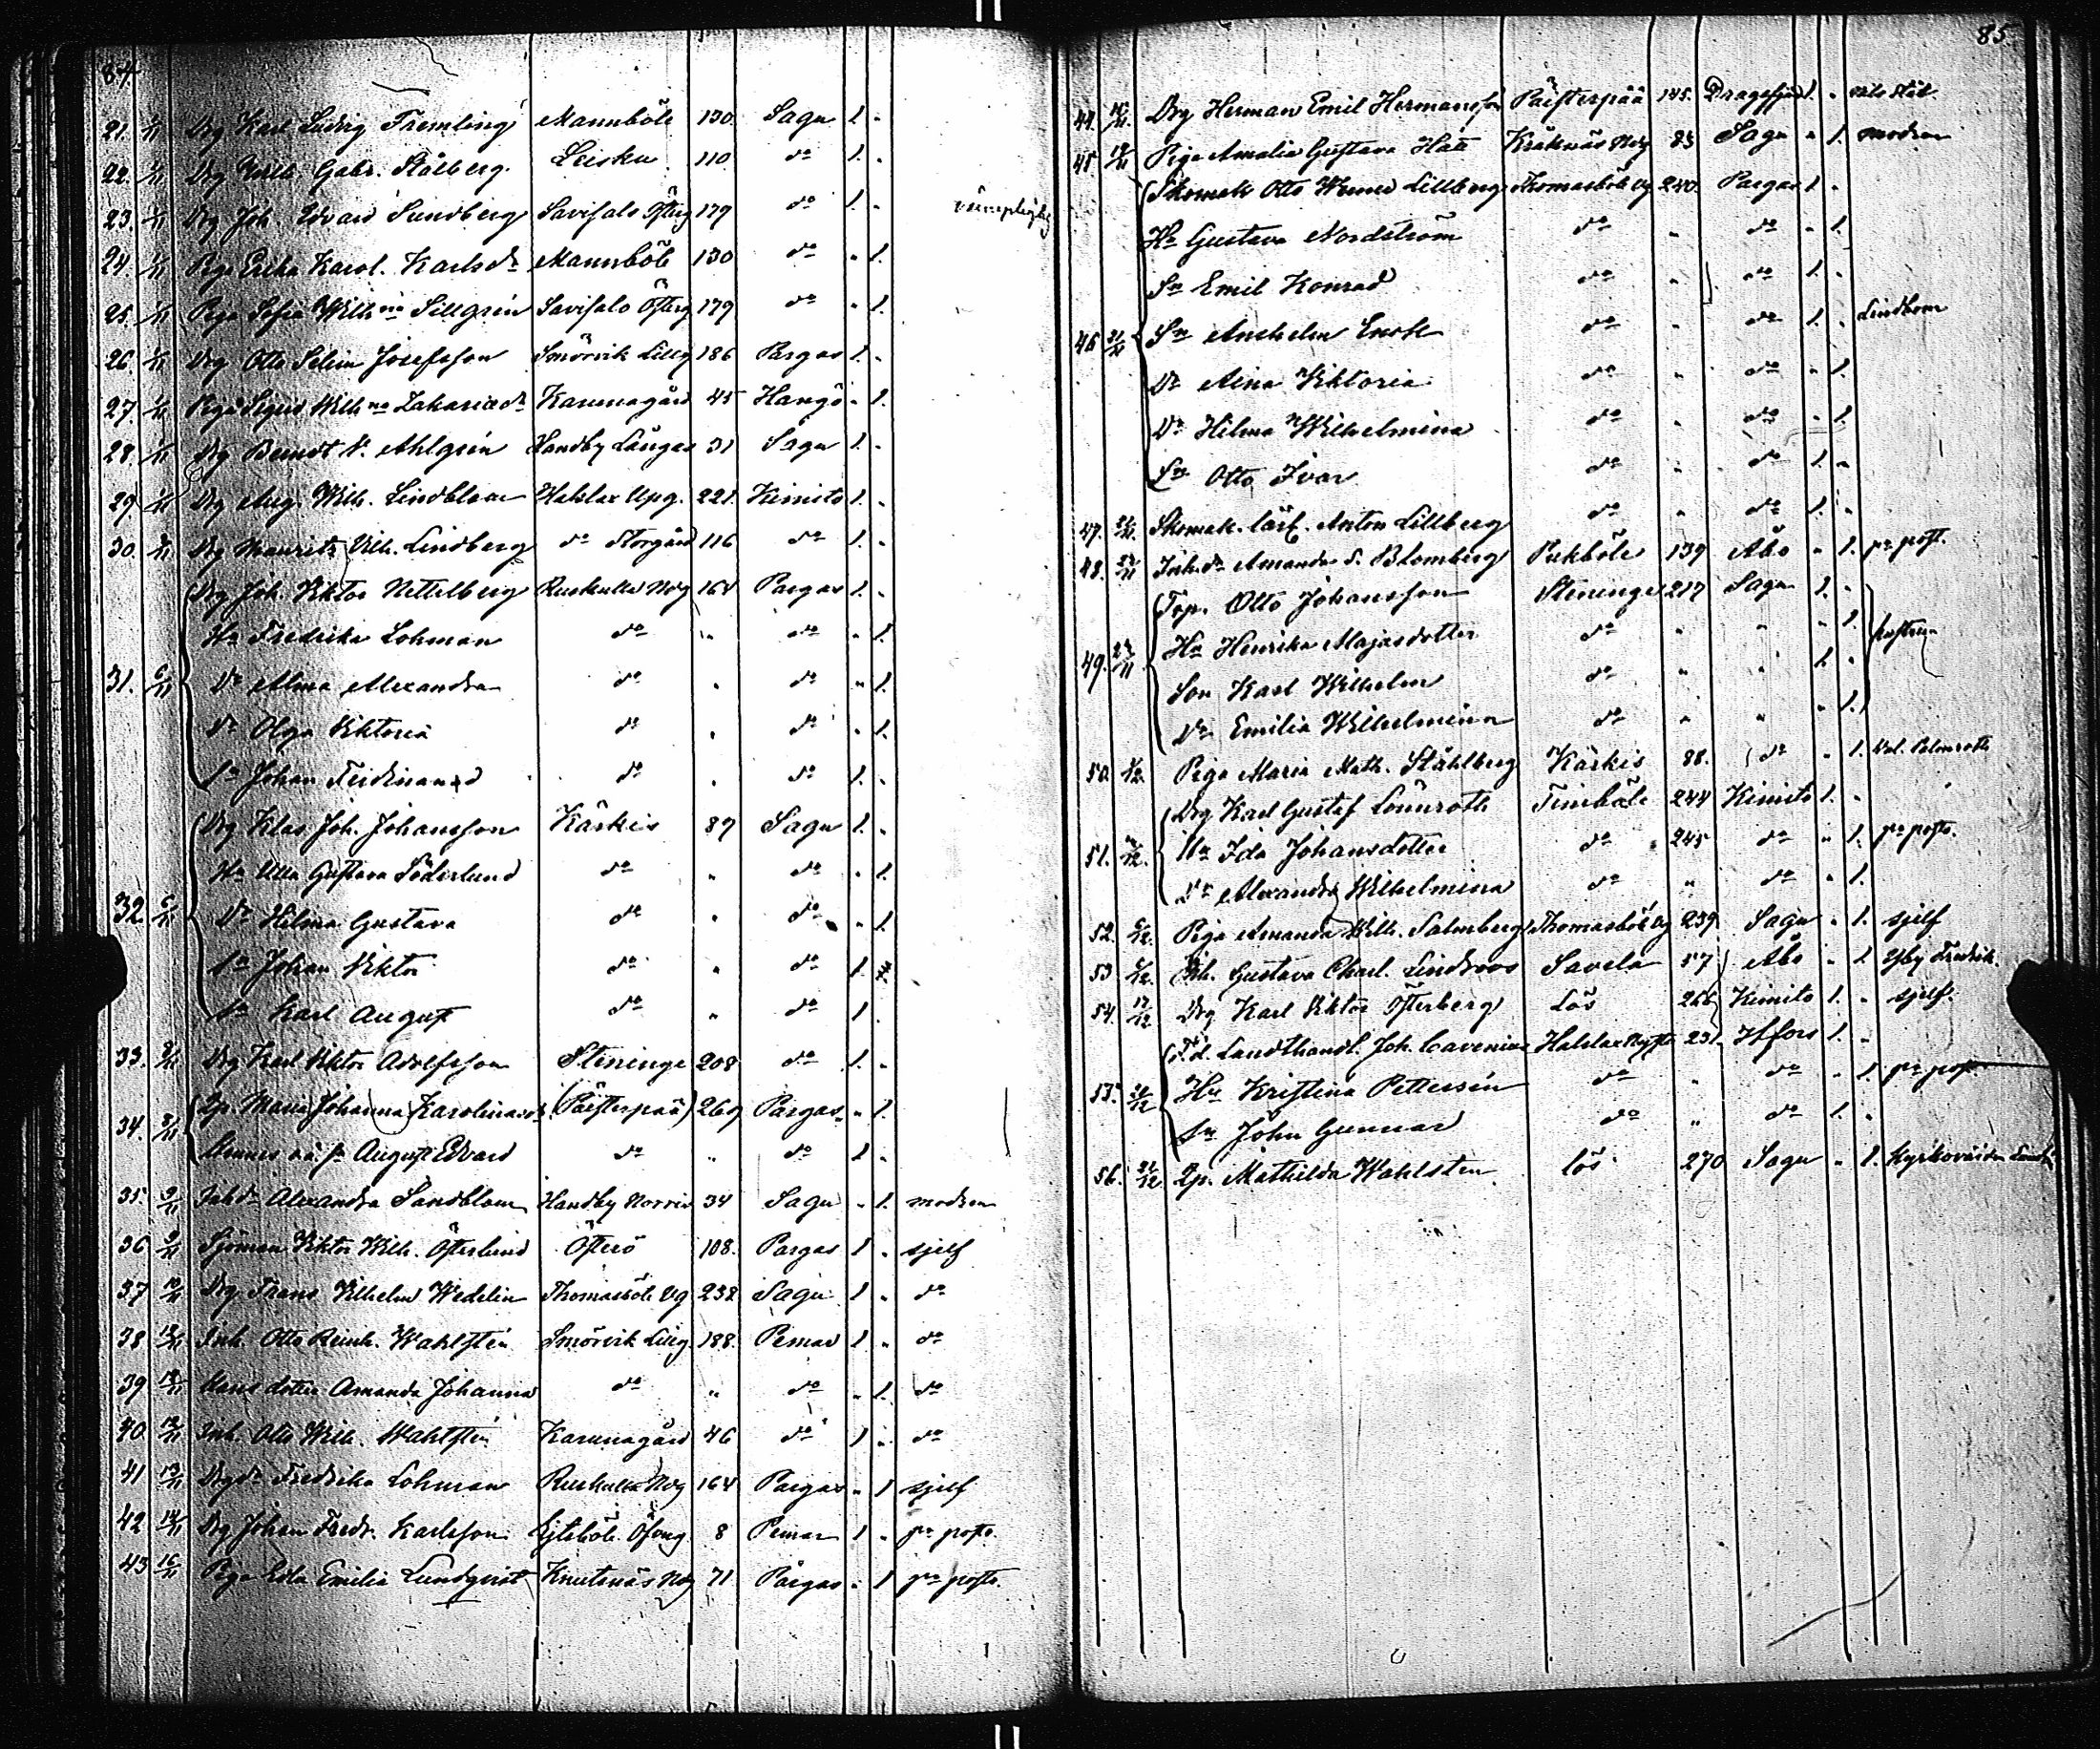 84
21. 1/11 Drg Karl Ludvig Fremling Mannböle 130. Sagu 1. "
22. 1/11 Drg Wilh. Gabr. Stålberg Leisku 110 do 1. "
23. 1/11 Drg Joh. Edvard Sundberg Savisalo Österg 179 do 1. "
24. 1/11 Piga Erika Karol. Karlsdr Mannböle 130 do " 1.
25. 1/11 Piga Sofia Wilhna Sillgrén Savisalo Österg 179 do " 1.
26. 1/11 Drg Otto Selim Josefsson Smörvik Lillg 186 Pargas 1. "
27. 1/11 Piga Sigrid Wilhna Zakariadr Karunagård 45 Hangö " 1.
28. 1/11 Drg Berndt V. Ahlgrén Handby Långas 31 Sagu 1. "
29. 1/11 Drg Aug. Wilh. Lindblom Halslax Upg. 221. Kimito 1. "
30. Drg Maurits Vilh. Lindberg do Storgård 116 do 1. "
Drg Joh. Viktor Nettelberg Ruskulla Norg 164 Pargas 1. "
Hu Fredrika Lohman do " do " 1.
31. 6/11 Dr Alma Alexandra do " do " 1.
Dr Olga Viktoria do " do " 1.
Sn Johan Ferdinand do " do 1. "
Drg Klas Joh. Johansson Kärkis 89 Sagu 1. "
Hu Ulla Gustava Söderlund do " do " 1.
32. 6/11 Dr Hilma Gustava do " do " 1.
Sn Johan Viktor do " do 1.
Sn Karl August do " do 1.
33. Drg Karl Viktor Adolfsson Steninge 208 do 1. "
34. 8/11 Qp. Maria Johanna Karolinadr (Päisterpää) 269 Pargas " 1.
Hennes oä. sn August Edvard do " do 1 "
35. 9/11 Inhdr Alexandra Sandblom Handby Norrin 34 Sagu " 1. modren
36 9/11 Sjöman Viktor Wilh. Österlund Österö 108. Pargas 1 " sjelf
37 10/11 Drg Frans Vilhelm Wedelin Thomasböle Ug 232 Sagu 1 " do
38 12/11 Inh. Otto Reinh. Wahlstén Smörvik Lillg 188. Pemar 1 " do
39 12/11 Hans dotter Amanda Johanna do " do " 1. do
40. 12/11 Inh. Otto Wilh. Wahlstén Karunagård 46 do 1 " do
41 13/11 Drgdr Fredrika Lohman Ruskulla Norg 164 Pargas " 1 sjelf
42 14/11 Drg Johan Fredr. Karlsson 8 Pemar 1 " pr posto.
43 16/11 Piga Edla Emilia Lundqvist Knutnäs Norg 71 Pargas " 1 pr posto.
85.
44. Drg Herman Emil Hermansson Päisterpää 145. Dragsfjärd 1. "
45. Piga Amalia Gustava Hätt Kräknäs Norg 83 Sagu " 1. modren
Skomak Otto Werner Lillberg Thomasböle Ug 240. Pargas 1. "
Hu Gustava Nordström do " do " 1.
Sn Emil Konrad do " do 1. "
46 Sn Anshelm Enok do " do 1. " Lindbom
Dr Aina Viktoria do " do " 1.
Dr Hilma Wilhelmina do " do " 1.
Sn Otto Ivar do " do 1. "
47. Skomak. lärl. Anton Lillberg do " do 1. "
48. Inh.dr Amanda S. Blomberg Pukböle 139 Åbo " 1. pr post.
Trp. Otto Johansson Steninge 217 Sagu 1. "
49. Hu Henrika Majasdotter do " " " 1. hustrun
Son Karl Wilhelm do " " 1. "
Dr Emilia Wilhelmina do " " " 1.
50. 1/12. Piga Maria Math. Ståhlberg Kärkis 88. do " 1.
Drg Karl Gustaf Lönnroth Timböle 244 Kimito 1. "
51. Hu Ida Johansdotter do 245 do " 1. pr posto.
Dr Alexandra Wilhelmina do " do " 1.
52. 6/12. Piga Amanda Wilh. Salmberg Thomasböle Ug 239 Sagu " 1. sjelf
53 Inh. Gustava Charl. Lindroos Savela 57 Åbo " 1
54. 17/12 Drg Karl Viktor Österberg Lös 266 Kimito 1. " sjelf.
F.d. Landthandl. Joh. Cavenius 231 Hfors 1. "
55. Hu Kristina Pettersén do " do " 1. pr post
Sn John Gunnar do " do 1. "
56. Qp. Mathilda Wahlsten lös 270 Sagu " 1.